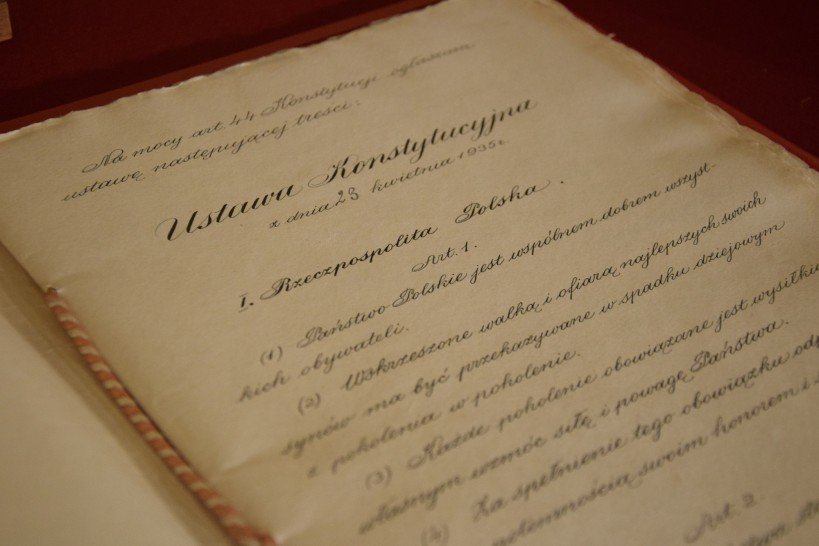 Na mocy art. 44 Konstytucji ogłaszam
ustawę następującej treści:
Ustawa Konstytucyjna
z dnia 23 kwietnia 1935 r.
I. Rzeczpospolita Polska.
Art. 1.
(1) Państwo Polskie jest wspólnem dobrem wszyst-
kich obywateli.
(2) Wskrzeszone walką i ofiarą najlepszych swoich
synów ma być przekazywane w spadku dziejowym
z pokolenia w pokolenie.
(3) Każde pokolenie obowiązane jest wysiłki
własnym wzmóc siłę i powagę Państwa.
(4) Za spełnienie tego obowiązku odp
swoim honorem i
Art. 2.